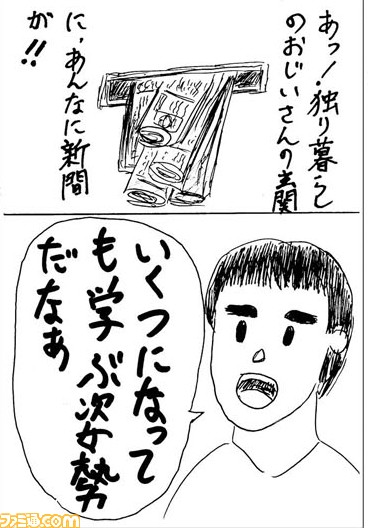 あっ！独り暮らし
のおじいさんの玄関
に、あんなに新聞
が!!
いくつになって
も学ぶ姿勢
だなあ
ファミ通.com